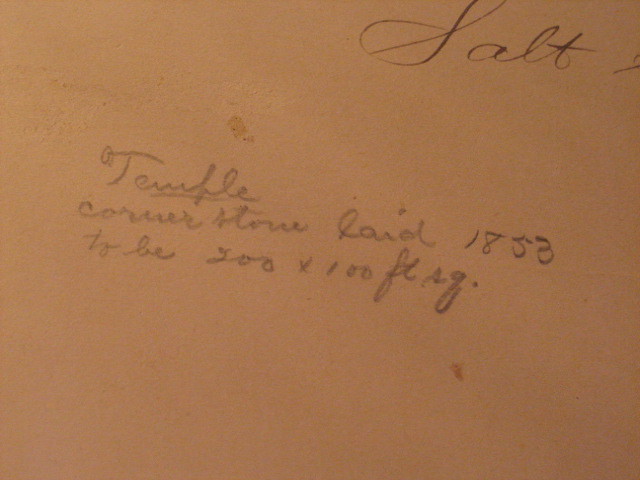 Salt
Temple
corner stone laid 1853
to be 200 x 100 ft sq.